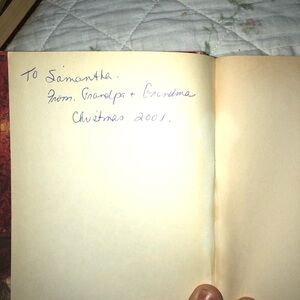 To Samantha.
From, Grandpa + Grandma
Christmas 2001.